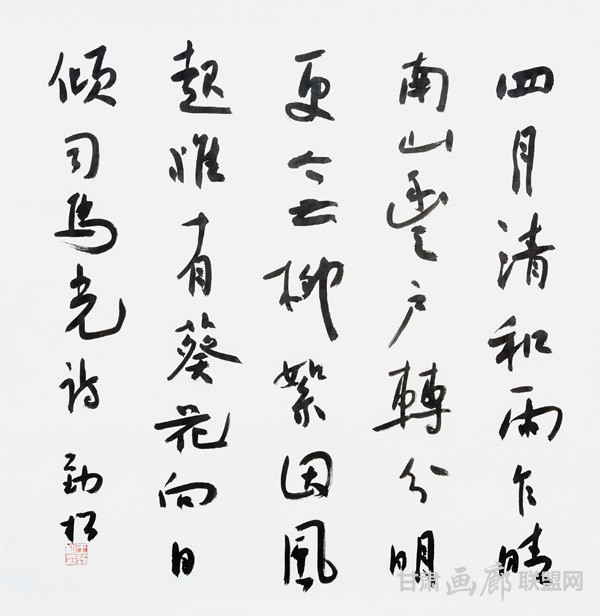 四月清和雨乍晴
南山當户轉分明
更無柳絮因風
起惟有葵花向日
傾司馬光詩 勁松
甘肃画廊联盟网